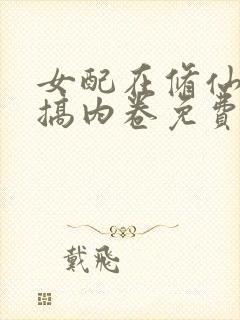 女配在修仙
搞内卷免费
戴飛